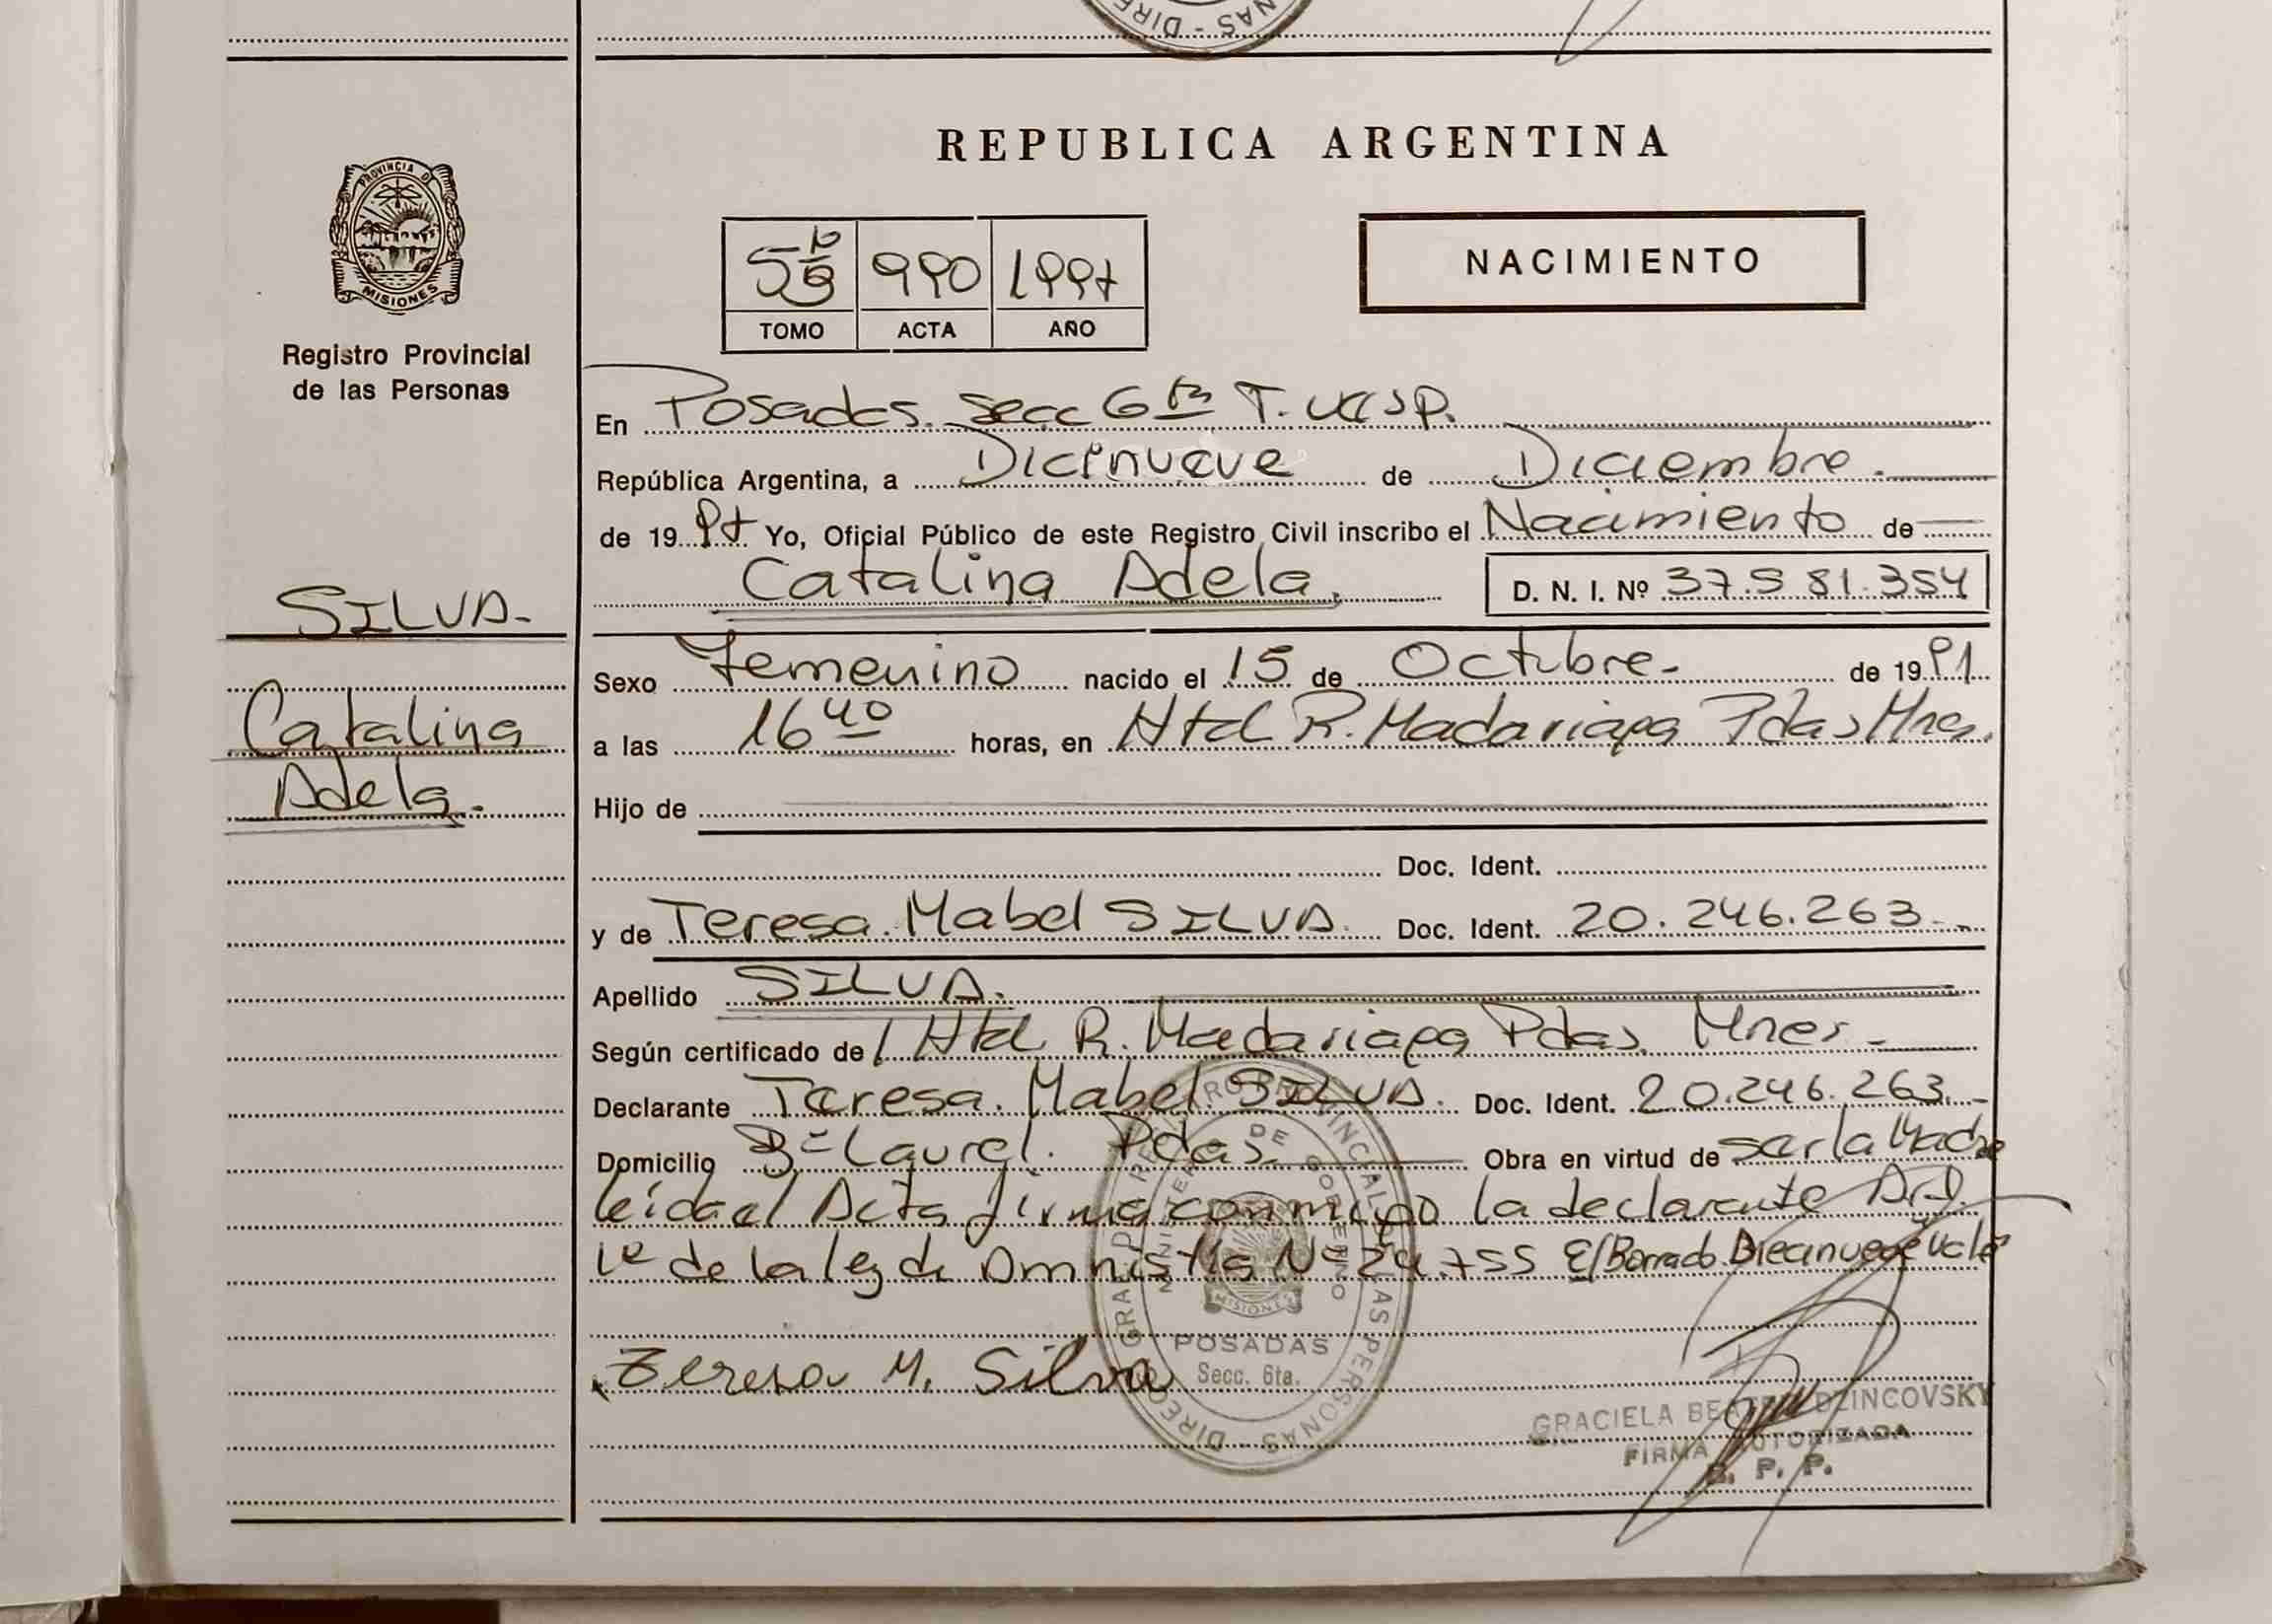 DIRE - SANAS
REPUBLICA ARGENTINA
PROVINCIA D
MISIONES
Registro Provincial
de las Personas
990 1997
TOMO ACTA AÑO
NACIMIENTO
En Posadas. Secc 6ta T.
República Argentina, a Diecinueve de Diciembre.
de 1997 Yo, Oficial Público de este Registro Civil inscribo el Nacimiento de
Catalina Adela. D. N. I. Nº 37.581.354
SILVA.
Catalina
Adela.
Sexo Femenino nacido el 15 de Octubre. de 1991
a las 16 40 horas, en Htal R. Madariaga Pdas Mnes.
Hijo de
Doc. Ident.
y de Teresa Mabel SILVA. Doc. Ident. 20.246.263.
Apellido SILVA.
Según certificado de Htal R. Madariaga Pdas. Mnes.
Declarante Teresa Mabel SILVA. Doc. Ident. 20.246.263.
Domicilio Bº Laurel. Pdas. Obra en virtud de ser la Madre
leida el Acta firma conmigo la declarante Art.
1º de la ley de Amnistia Nº 24.755 E/Borrado Diecinueve Vale
Teresa M. Silva
MINISTERIO DE GOBIERNO
MISIONES
POSADAS
Secc. 6ta.
GRACIELA DZINCOVSKY
FIRMA AUTORIZADA
R. P. P.